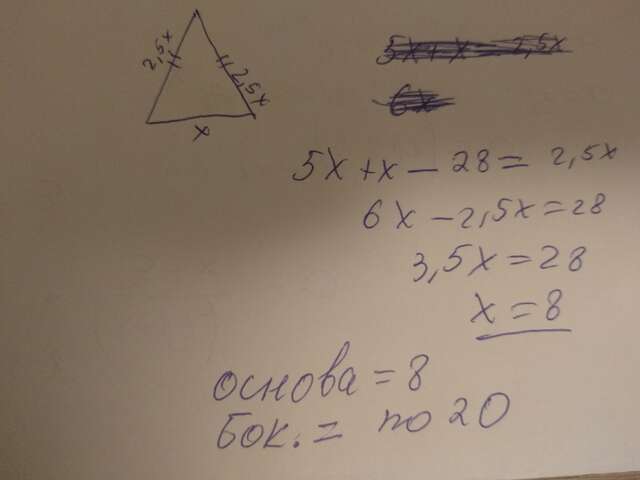 2,5x
2,5x
x
5x+x=2,5x
6x
5x+x-28=2,5x
6x-2,5x=28
3,5x=28
x=8
основа=8
Бок.=по 20